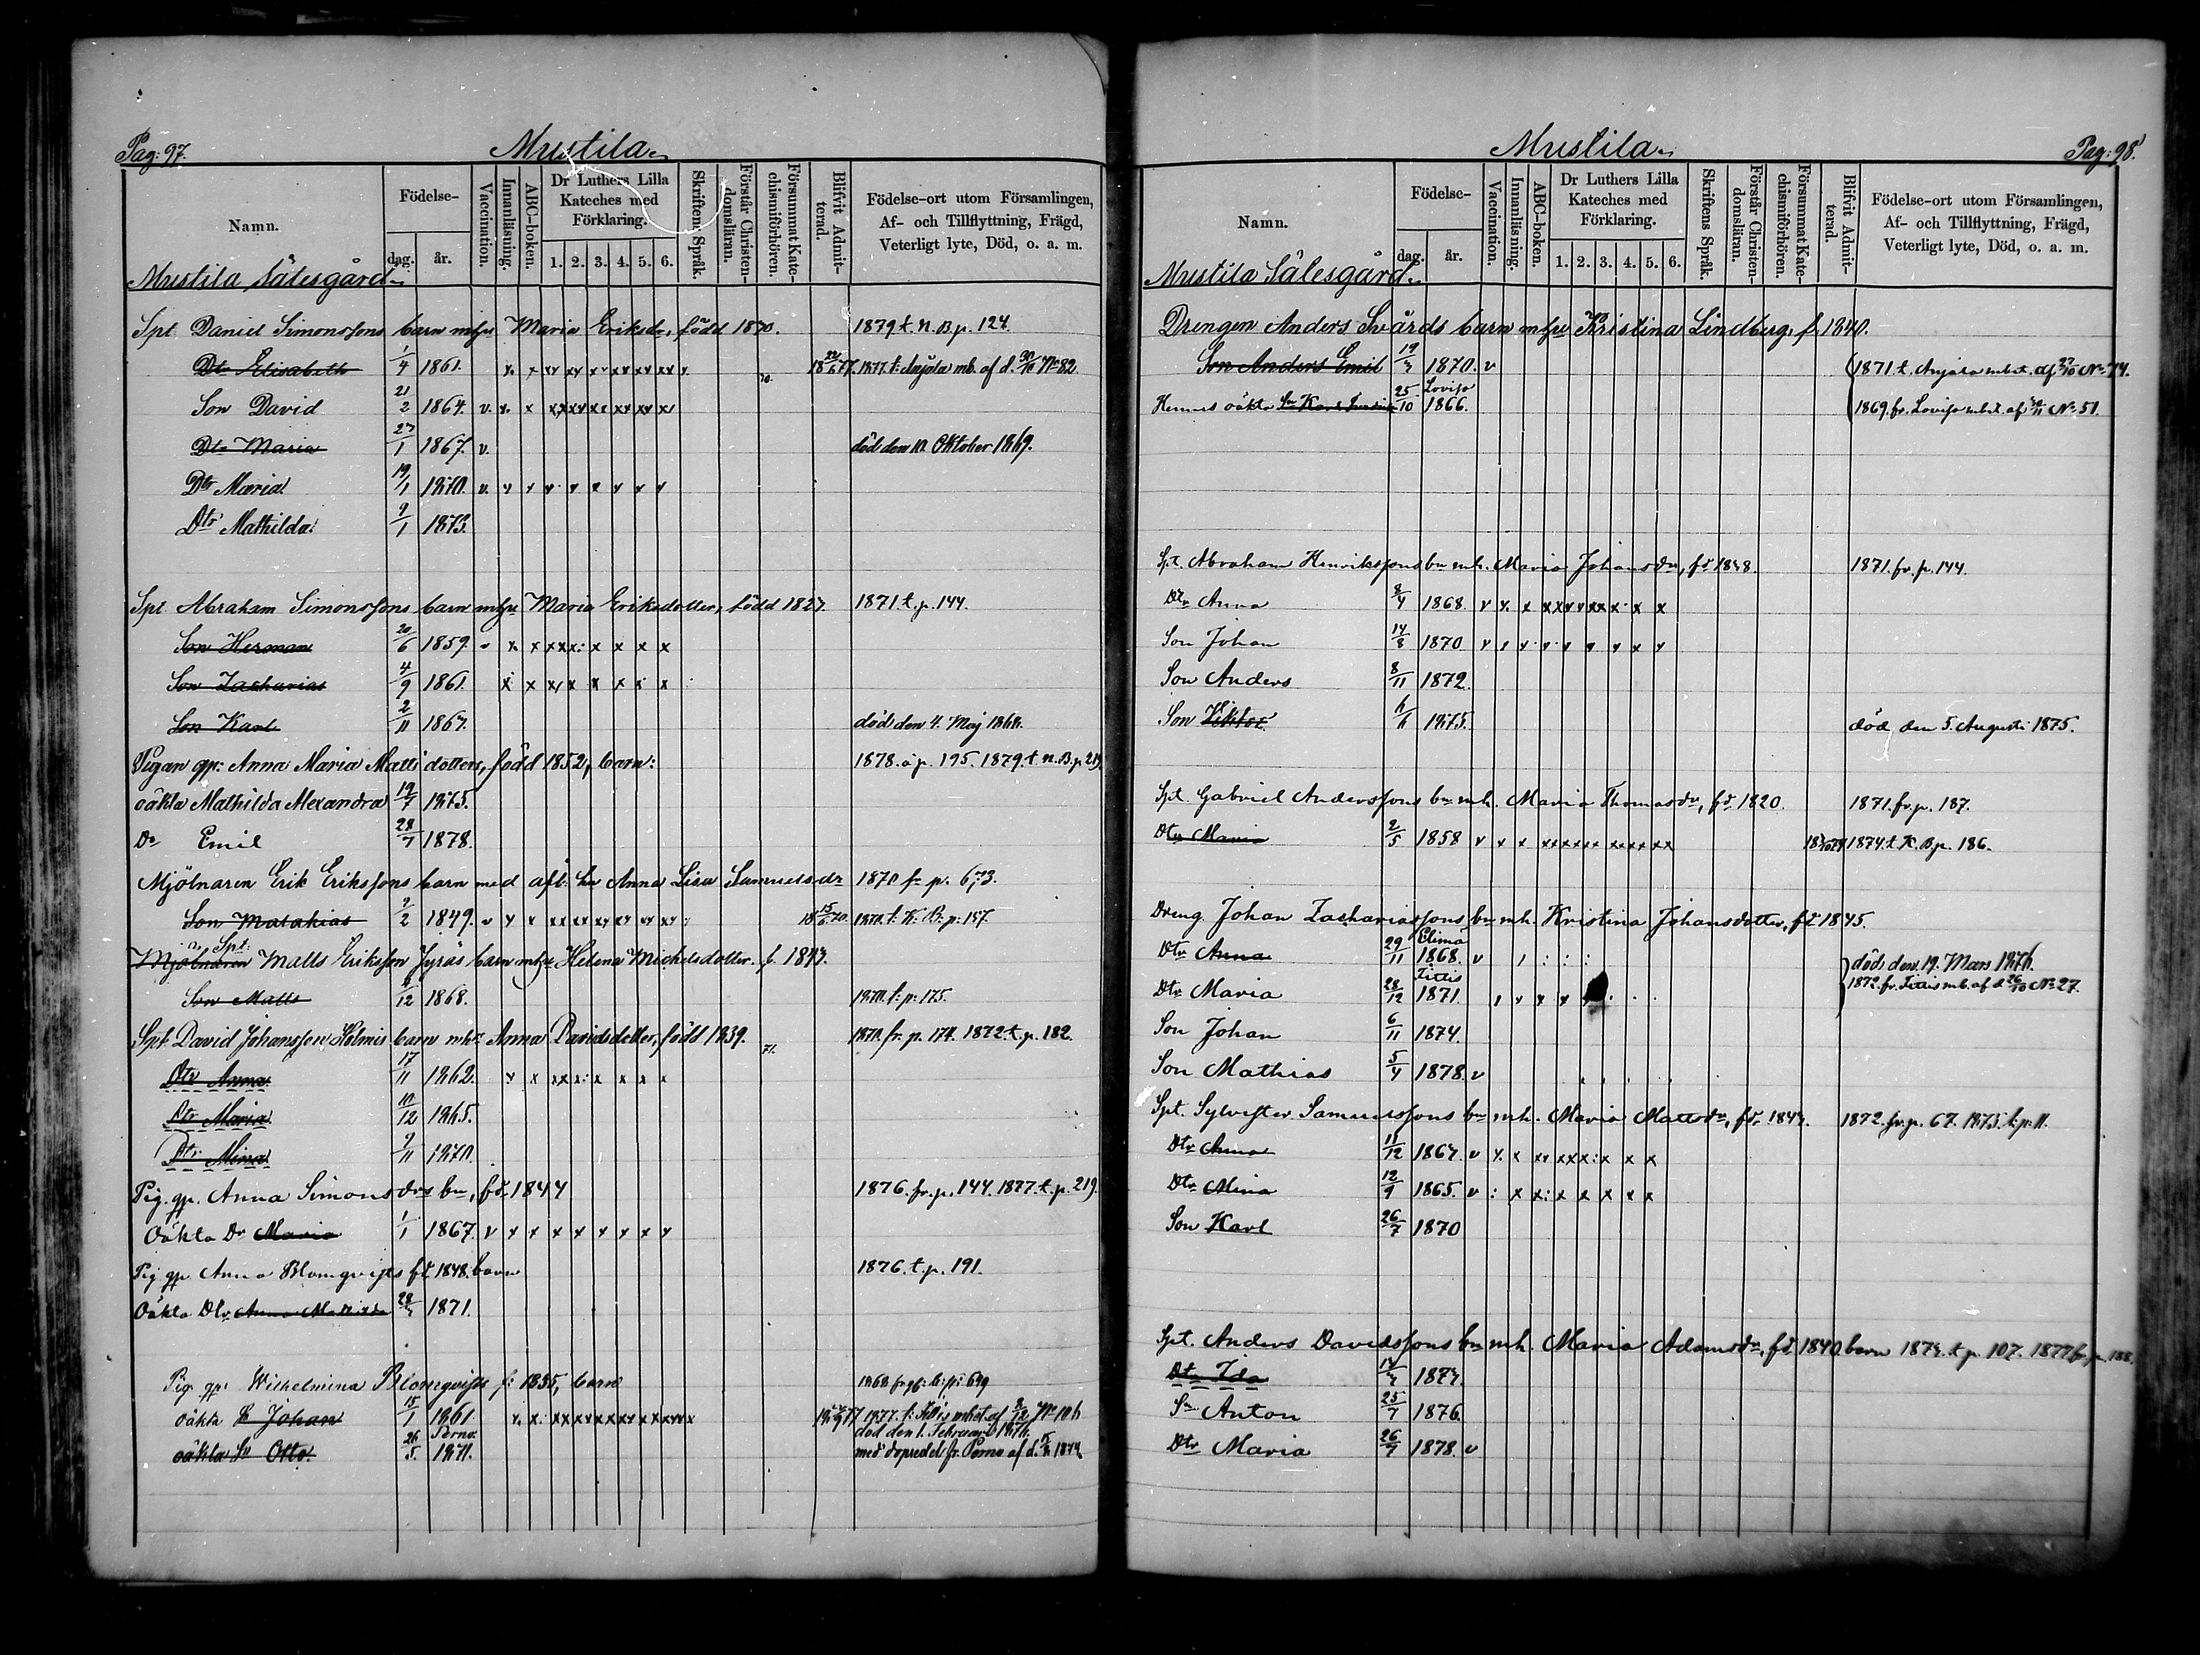 Pag: 97.
Mustila
Namn.
Födelse-
dag.
år.
Vaccination.
Innanläsning.
ABC-boken.
Dr Luthers Lilla Kateches med Förklaring.
1. 2. 3. 4. 5. 6.
Skriftens Språk.
Förstår Christendomsläran.
Försummat Katechismiförhören.
Blifvit Admitterad.
Födelse-ort utom Församlingen, Af- och Tillflyttning, Frägd, Veterligt lyte, Död, o. a. m.
Mustila Sätesgård
Spt. Daniel Simonssons barn m hu Maria Eriksdr, född 1830. 1879 t. N. B. p. 124.
Dtr Elisabeth 1/4 1861. 1877 t. Anjala mb. af d. 30/10 No 82.
Son David 21/2 1864. v.
Dtr Maria 27/1 1867. v. död den 10. Oktober 1869.
Dtr Maria 19/1 1870. v.
Dtr Mathilda 9/1 1873.
Spt Abraham Simonssons barn m hu Maria Eriksdotter, född 1827. 1871 t. p. 144.
Son Herman 20/6 1859.
Son Zacharias 4/9 1861.
Son Karl 2/11 1867. död den 4. Maj 1868.
Pigan gp: Anna Maria Matts dotters, född 1852, barn: 1878. å p. 195. 1879. t. N. B. p. 219
oäkta Mathilda Alexandra 19/7 1875.
Do Emil 28/7 1878.
Mjölnaren Erik Erikssons barn med afl. hu Anna Lisa Samuelsdr 1870 fr p. 673.
Son Matakias 9/2 1849. 18 15/6 70. 1870. t. K. B. p. 157.
Mjölnaren Spt. Matts Eriksson Jyräs barn m hu Helena Michelsdotter. f. 1843.
Son Matts 12 1868. 1870. t. p. 175.
Spt David Johansson Holmis barn m hr Anna Davidsdotter, född 1839. 71. 1870. fr. p. 174. 1872. t. p. 182.
Dtr Anna 17/11 1862.
Dtr Maria 10/12 1865.
Dtr Mina 9/11 1870.
Pig. gp. Anna Simonsdrs bn, fd 1844 1876. fr. p. 144. 1877. t. p. 219.
Oäkta Dr Maria 1/1 1867. v
Pig gp Anna Blomqvists fd 1848. barn 1876. t. p. 191.
Oäkta Dtr Anna Mathilda 1871.
Pig gp: Wilhelmina Blomqvists f: 1835, barn
oäkta Sn Johan 15/1 1861.
död den 1. Februari 1876.
oäkta Sn Otto. 26/5. Perno 1871.
Pag: 98.
Mustila
Namn.
Födelse-
dag.
år.
Vaccination.
Innanläsning.
ABC-boken.
Dr Luthers Lilla Kateches med Förklaring.
1. 2. 3. 4. 5. 6.
Skriftens Språk.
Förstår Christendomsläran.
Försummat Katechismiförhören.
Blifvit Admitterad.
Födelse-ort utom Församlingen, Af- och Tillflyttning, Frägd, Veterligt lyte, Död, o. a. m.
Mustila Sätesgård
Drengen Anders Svärds barn m hu Kristina Lindberg, f. 1840.
Son Anders Emil 1870. v 1871. t. Anjala mbt. No 74.
Hennes oäkta Sn Karl 25/10 Lovisa 1866. 1869. fr. Lovisa mbt. No 51.
Spt. Abraham Henrikssons bn m h. Maria Johansdr, fd 1848. 1871. fr. p. 144.
Dtr Anna 8/4 1868. v
Son Johan 14/8 1870 v
Son Anders 8/11 1872.
Son Viktor 6/6 1875. död den 5. Augusti 1875.
Spt. Gabriel Anderssons bn m h. Maria Thomasdr, fd 1820. 1871. fr. p. 187.
Dtr Maria 2/5 1858 v 1874. t. K. B. p. 186.
Dreng. Johan Zachariassons bn m h. Kristina Johansdotter, fd 1845.
Dtr Anna 29/11 Elimä 1868. v död den 19. Mars 1876.
Dtr Maria 28/12 Tittis 1871. 1872. fr. Tittis mb. af d. 26/10 No 27.
Son Johan 6/11 1874.
Son Mathias 5/4 1878. v
Spt. Sylvester Samuelssons bn m h. Maria Mattsdr, fd. 1843. 1872. fr. p. 67. 1875. t. p. 11.
Dtr Anna 11/12 1867. v
Dtr Mina 12/9 1865. v
Son Karl 26/7 1870
Spt. Anders Davidssons bn m h. Maria Adamsdr, fd 1840 barn 1873. t. p. 107. 1877 fr. p. 188.
Dtr Ida 1873.
Sn Anton 25/7 1876.
Dtr Maria 26/7 1878. v